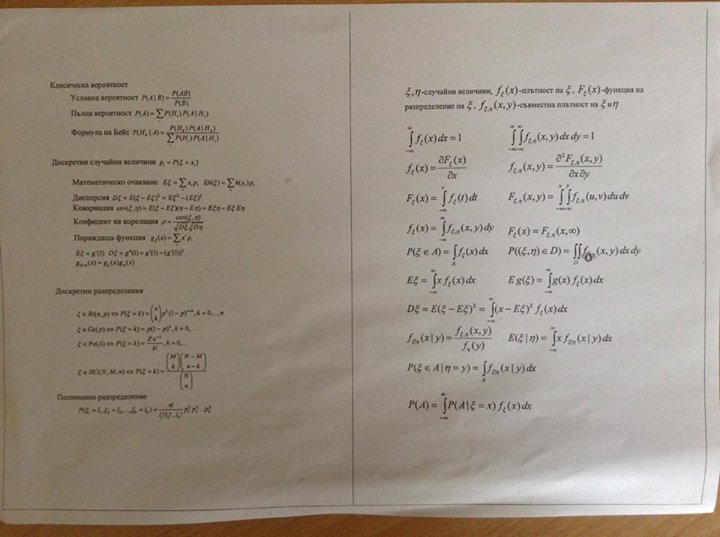 Класическа вероятност
Условна вероятност P(A|B) = P(AB) / P(B)
Пълна вероятност P(A) = ∑ P(H_i) P(A|H_i)
Формула на Бейс P(H_k|A) = P(H_k) P(A|H_k) / ∑ P(H_i) P(A|H_i)
Дискретни случайни величини p_i = P(ξ = x_i)
Математическо очакване Eξ = ∑ x_i p_i Eh(ξ) = ∑ h(x_i) p_i
Дисперсия Dξ = E(ξ − Eξ)² = Eξ² − (Eξ)²
Ковариация cov(ξ,η) = E(ξ − Eξ)(η − Eη) = Eξη − Eξ Eη
Коефицент на корелация ρ = cov(ξ,η) / √Dξ √Dη
Пораждаща функция g_ξ(x) = ∑ x^i p_i
Eξ = g'(1) Dξ = g''(1) + g'(1) − (g'(1))²
g_{ξ+η}(x) = g_ξ(x) g_η(x)
Дискретни разпределения
ξ ∈ Bi(n, p) ⇔ P(ξ = k) = (n k) p^k (1 − p)^{n−k}, k = 0,...,n
ξ ∈ Ge(p) ⇔ P(ξ = k) = p(1 − p)^k, k = 0,...
ξ ∈ Po(λ) ⇔ P(ξ = k) = λ^k e^{−λ} / k!, k = 0,...
ξ ∈ HG(N, M, n) ⇔ P(ξ = k) = (M k)(N − M n − k) / (N n)
Полиномно разпределение
ξ,η-случайни величини, f_ξ(x)-плътност на ξ, F_ξ(x)-функция на
разпределение на ξ, f_{ξ,η}(x, y)-съвместна плътност на ξ и η
∫_{−∞}^{∞} f_ξ(x) dx = 1 ∫_{−∞}^{∞} ∫_{−∞}^{∞} f_{ξ,η}(x, y) dx dy = 1
f_ξ(x) = ∂F_ξ(x) / ∂x f_{ξ,η}(x, y) = ∂² F_{ξ,η}(x, y) / ∂x∂y
F_ξ(x) = ∫_{−∞}^{x} f_ξ(t) dt F_{ξ,η}(x, y) = ∫_{−∞}^{x} ∫_{−∞}^{y} f_{ξ,η}(u, v) du dv
f_ξ(x) = ∫_{−∞}^{∞} f_{ξ,η}(x, y) dy F_ξ(x) = F_{ξ,η}(x, ∞)
P(ξ ∈ A) = ∫_A f_ξ(x) dx P((ξ, η) ∈ D) = ∬_D f_{ξ,η}(x, y) dx dy
Eξ = ∫_{−∞}^{∞} x f_ξ(x) dx E g(ξ) = ∫_{−∞}^{∞} g(x) f_ξ(x) dx
Dξ = E(ξ − Eξ)² = ∫_{−∞}^{∞} (x − Eξ)² f_ξ(x) dx
f_{ξ|η}(x | y) = f_{ξ,η}(x, y) / f_η(y) E(ξ | η) = ∫_{−∞}^{∞} x f_{ξ|η}(x | y) dx
P(ξ ∈ A | η = y) = ∫_A f_{ξ|η}(x | y) dx
P(A) = ∫_{−∞}^{∞} P(A | ξ = x) f_ξ(x) dx